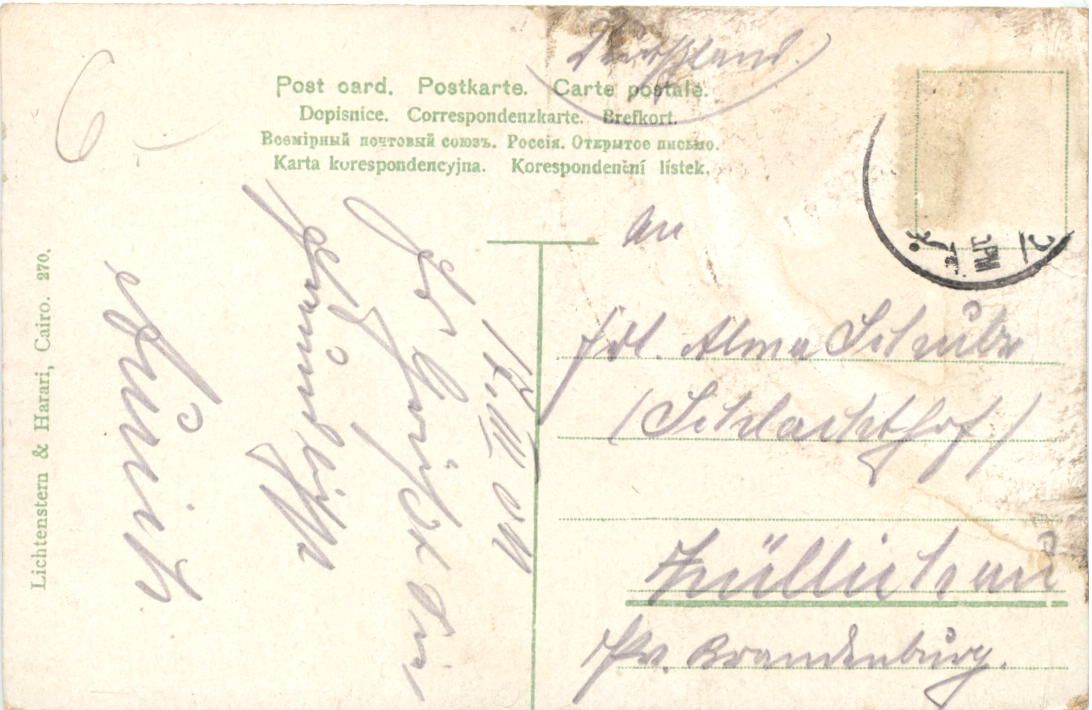 Deutschland.
Post card. Postkarte. Carte postale.
Dopisnice. Correspondenzkarte. Brefkort.
Всемірный почтовый союзъ. Россія. Открытое письмо.
Karta korespondencyjna. Korespondenční lístek.
Lichtenstern & Harari, Cairo. 270.
An
Frl. Alma Schulz
(Schlachthof)
Züllichau
Prv. Brandenburg.
Es grüßt Dir
2 PM